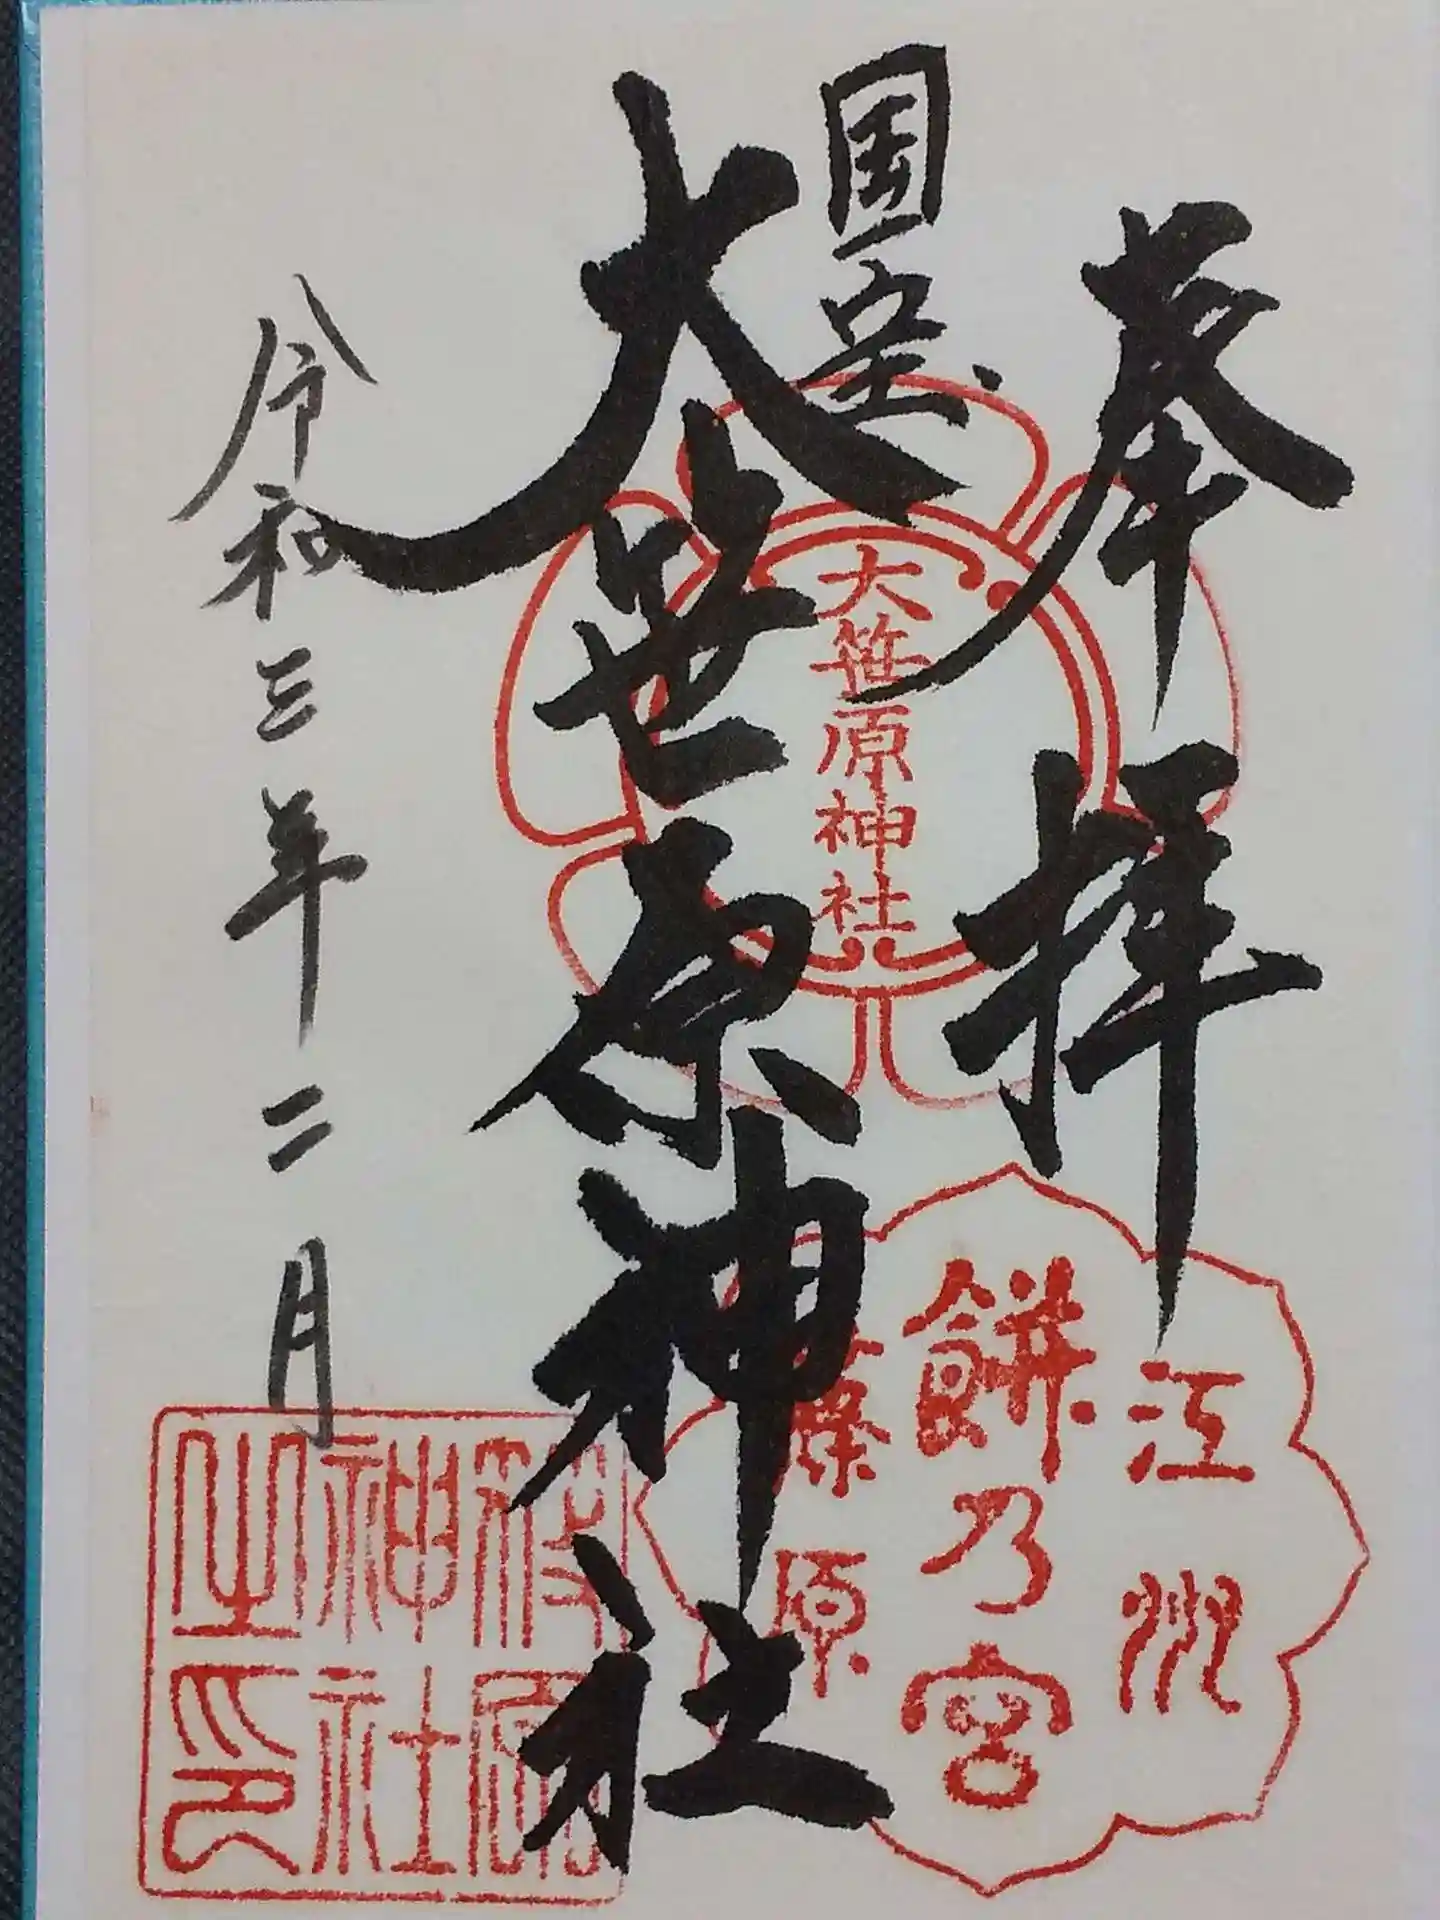 奉拝
国宝
大笹原神社
令和三年二月
大笹原神社
江州
餅乃宮
篠原
篠原
神社
之印